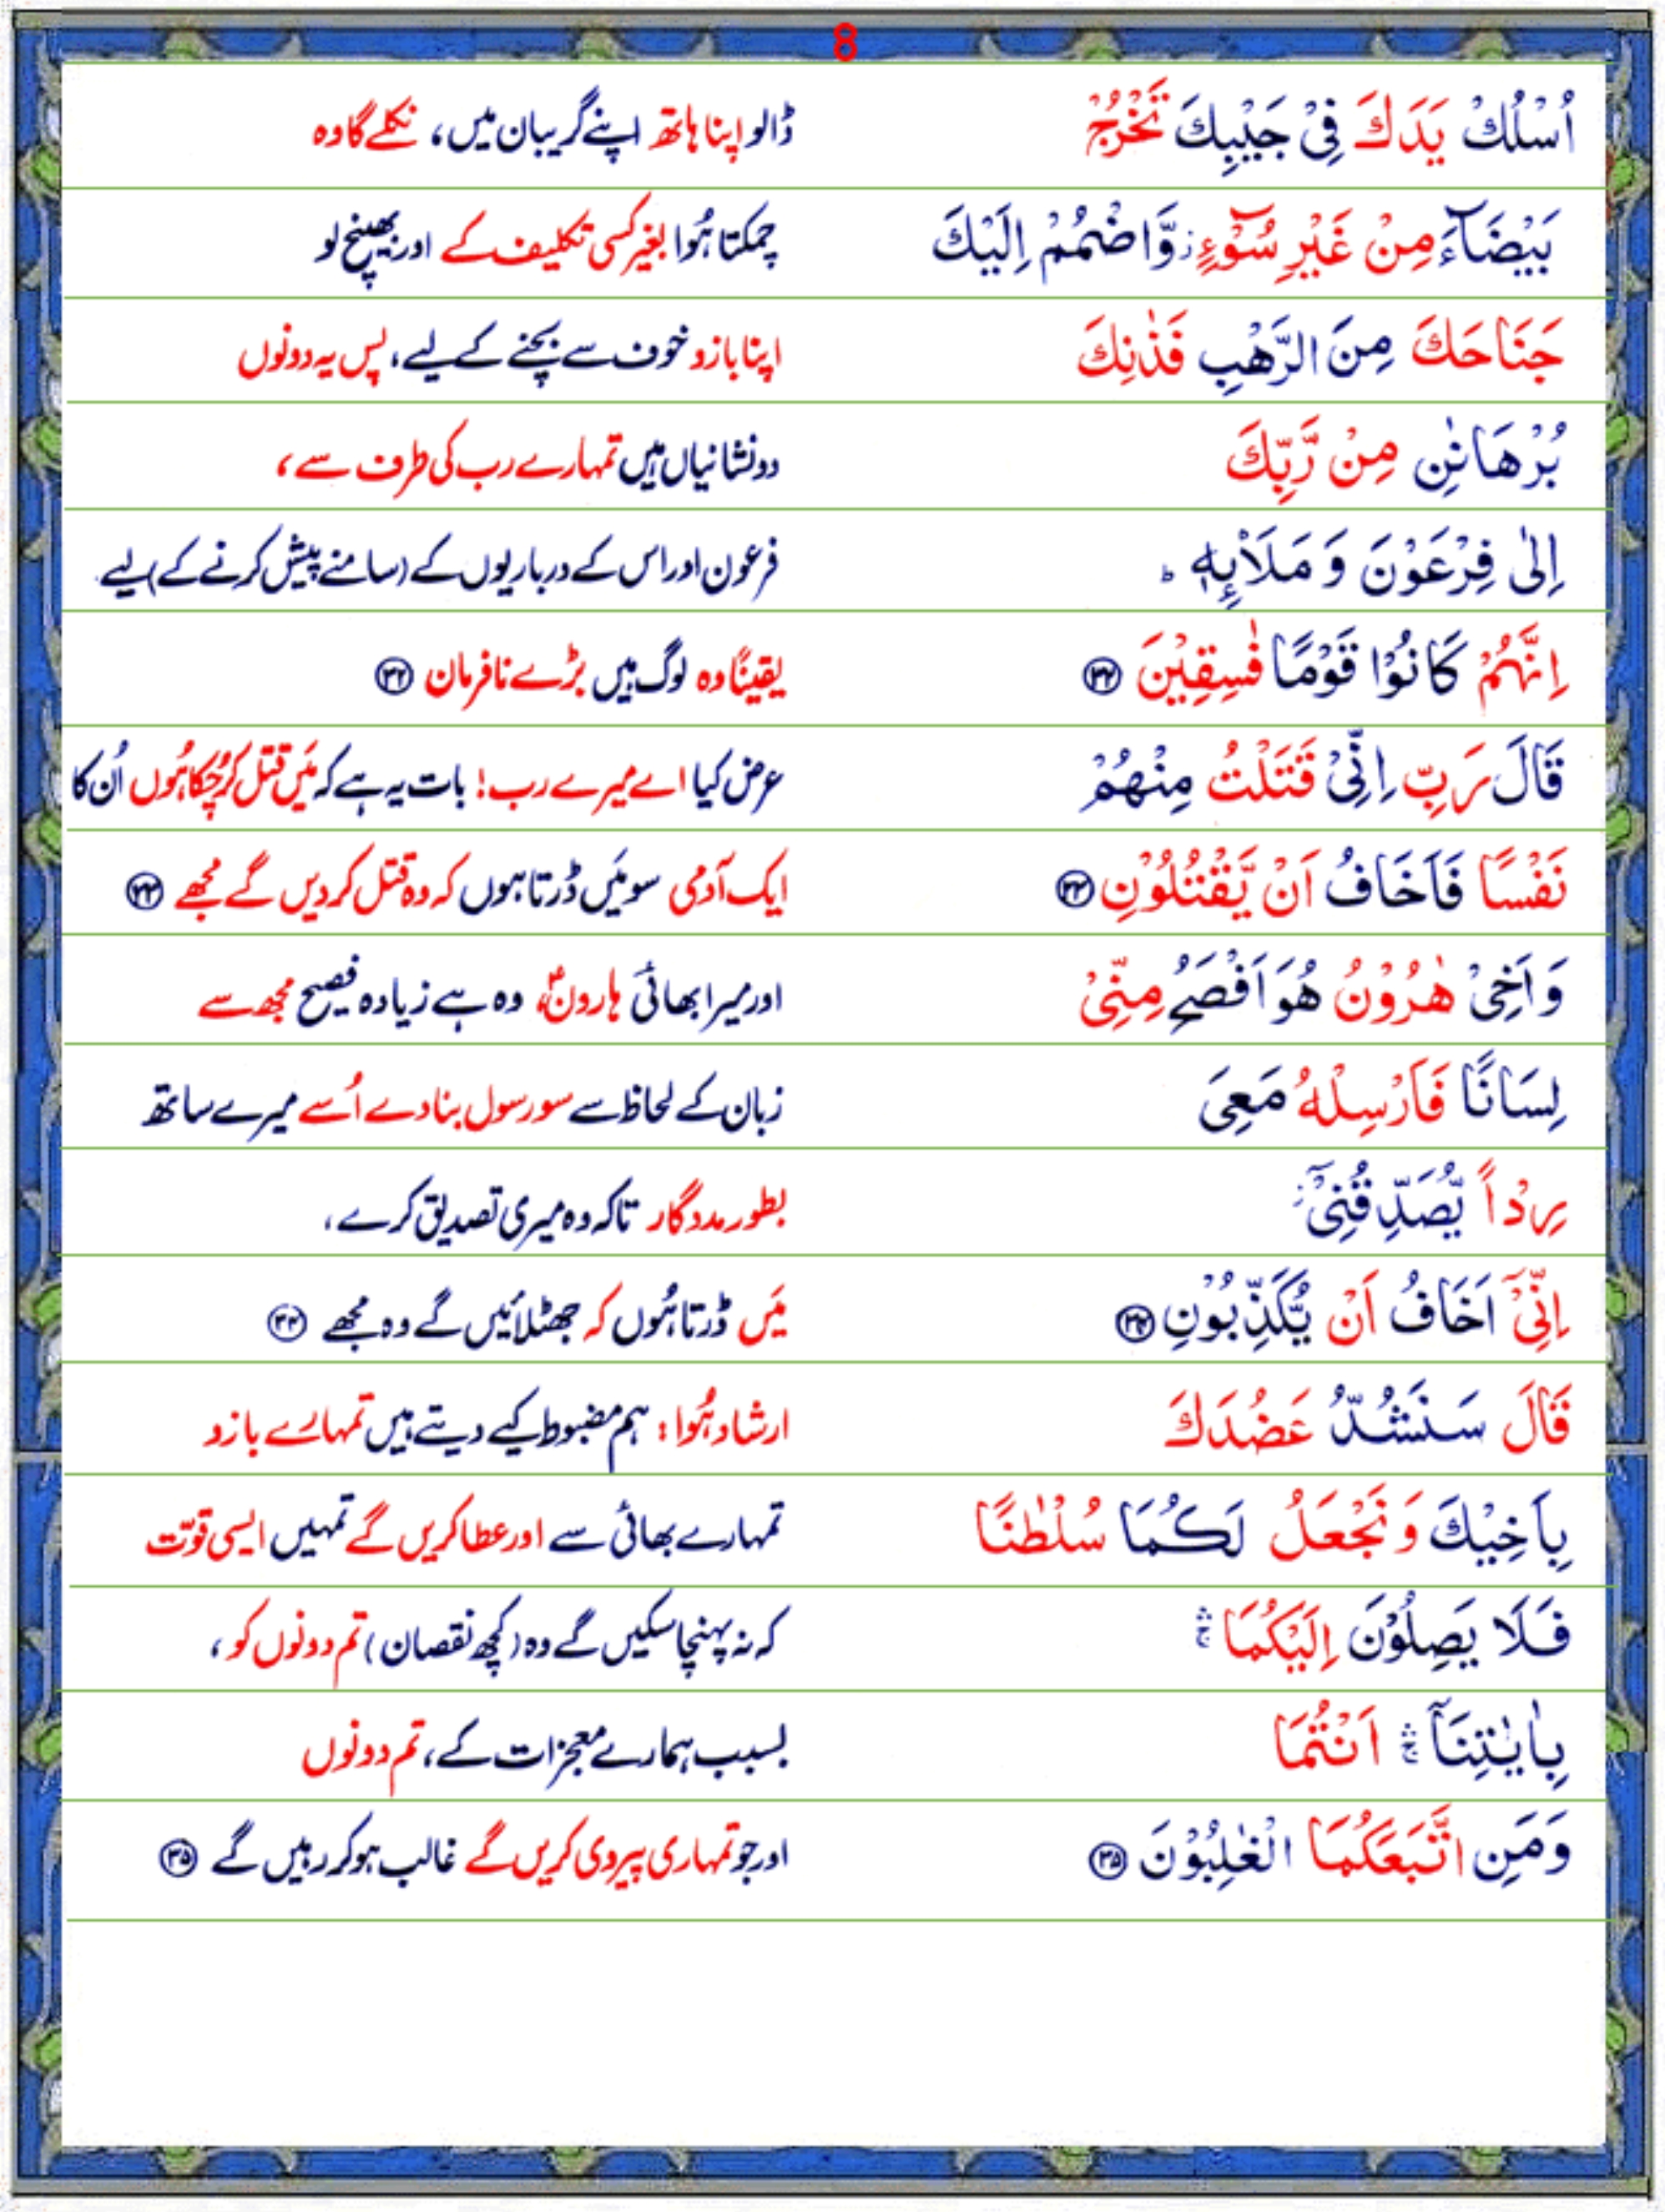 8
اُسْلُكْ يَدَكَ فِيْ جَيْبِكَ تَخْرُجْ
ڈالو اپنا ہاتھ اپنے گریبان میں، نکلے گا وہ
بَيْضَآءَ مِنْ غَيْرِ سُوْٓءٍ ز وَّاضْمُمْ اِلَيْكَ
چمکتا ہُوا بغیر کسی تکلیف کے اور بھینچ لو
جَنَاحَكَ مِنَ الرَّهْبِ فَذٰنِكَ
اپنا بازو خوف سے بچنے کے لیے، پس یہ دونوں
بُرْهَانٰنِ مِنْ رَّبِّكَ
دو نشانیاں ہیں تمہارے رب کی طرف سے،
اِلٰى فِرْعَوْنَ وَ مَلَا۟ىِٕهٖ ؕ
فرعون اور اس کے درباریوں کے (سامنے پیش کرنے کے) لیے
اِنَّهُمْ كَانُوْا قَوْمًا فٰسِقِيْنَ ۳۲
یقیناً وہ لوگ ہیں بڑے نافرمان ۳۲
قَالَ رَبِّ اِنِّيْ قَتَلْتُ مِنْهُمْ
عرض کیا اے میرے رب! بات یہ ہے کہ مَیں قتل کر چُکا ہُوں اُن کا
نَفْسًا فَاَخَافُ اَنْ يَّقْتُلُوْنِ ۳۳
ایک آدمی سو مَیں ڈرتا ہوں کہ وہ قتل کر دیں گے مُجھے ۳۳
وَ اَخِيْ هٰرُوْنُ هُوَ اَفْصَحُ مِنِّيْ
اور میرا بھائی ہارونؑ، وہ ہے زیادہ فصیح مجھ سے
لِسَانًا فَاَرْسِلْهُ مَعِيَ
زبان کے لحاظ سے سو رسول بنا دے اُسے میرے ساتھ
رِدْاً يُّصَدِّقُنِيْٓ ز
بطور مددگار تاکہ وہ میری تصدیق کرے،
اِنِّيْٓ اَخَافُ اَنْ يُّكَذِّبُوْنِ ۳۴
مَیں ڈرتا ہُوں کہ جھٹلائیں گے وہ مُجھے ۳۴
قَالَ سَنَشُدُّ عَضُدَكَ
ارشاد ہُوا: ہم مضبوط کیے دیتے ہیں تمہارے بازو
بِاَخِيْكَ وَ نَجْعَلُ لَكُمَا سُلْطٰنًا
تمہارے بھائی سے اور عطا کریں گے تمہیں ایسی قوّت
فَلَا يَصِلُوْنَ اِلَيْكُمَا ۛۚ
کہ نہ پہنچا سکیں گے وہ (کچھ نقصان) تم دونوں کو،
بِاٰيٰتِنَآ ۛۚ اَنْتُمَا
بسبب ہمارے معجزات کے، تم دونوں
وَ مَنِ اتَّبَعَكُمَا الْغٰلِبُوْنَ ۳۵
اور جو تمہاری پیروی کریں گے غالب ہو کر رہیں گے ۳۵